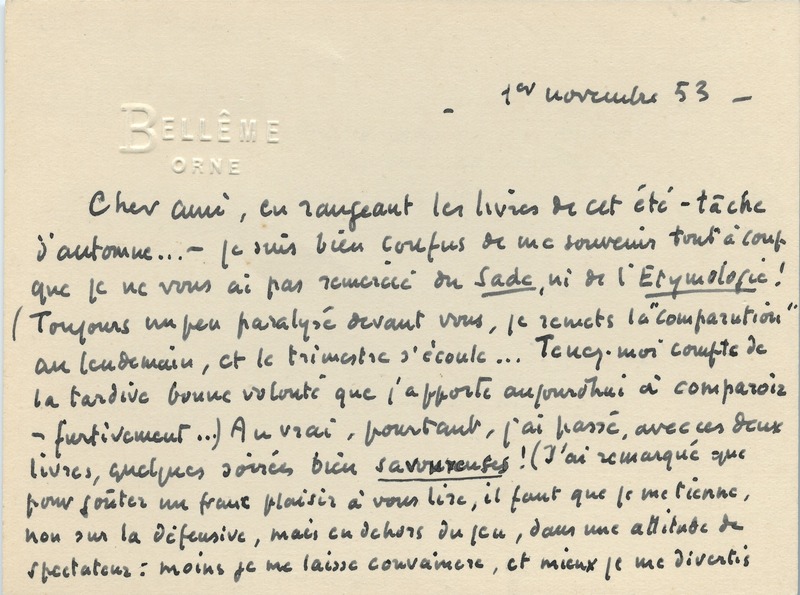 BELLÊME
ORNE
- 1er novembre 53 -
Cher ami, en rangeant les livres de cet été - tâche
d'automne... - je suis bien confus de me souvenir tout à coup
que je ne vous ai pas remercié du Sade, ni de l'Etymologie !
(Toujours un peu paralysé devant vous, je remets la "comparution"
au lendemain, et le trimestre s'écoule... Tenez-moi compte de
la tardive bonne volonté que j'apporte aujourdhui à comparoir
- furtivement...) Au vrai, pourtant, j'ai passé, avec ces deux
livres, quelques soirées bien savoureuses ! (J'ai remarqué que
pour goûter un franc plaisir à vous lire, il faut que je me tienne,
non sur la défensive, mais en dehors du jeu, dans une attitude de
spectateur : moins je me laisse convaincre, et mieux je me divertis